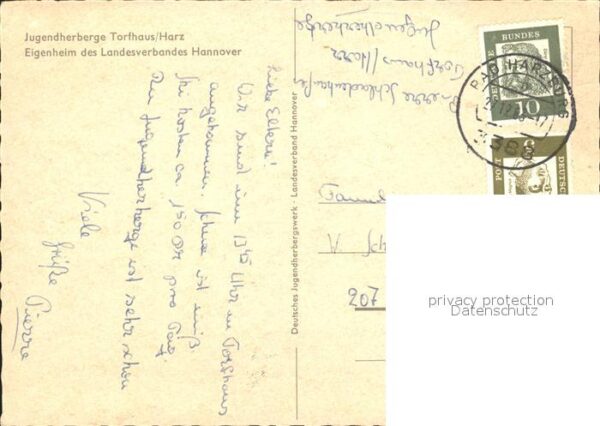 Jugendherberge Torfhaus/Harz
Eigenheim des Landesverbandes Hannover
Liebe Eltern!
Wir sind um 13 45 Uhr in Torfhaus
angekommen. Schnee ist
Ski kosten ca. 1,50 DM pro Tag.
Die Jugendherberge ist sehr schön
Viele
Grüße
Pierre
Deutsches Jugendherbergswerk - Landesverband Hannover
Pierre
Torfhaus/Harz
Jugendherberge
BUNDES
10
BAD HARZBURG
3388
8
POST
DEUTSC
207
privacy protection
Datenschutz